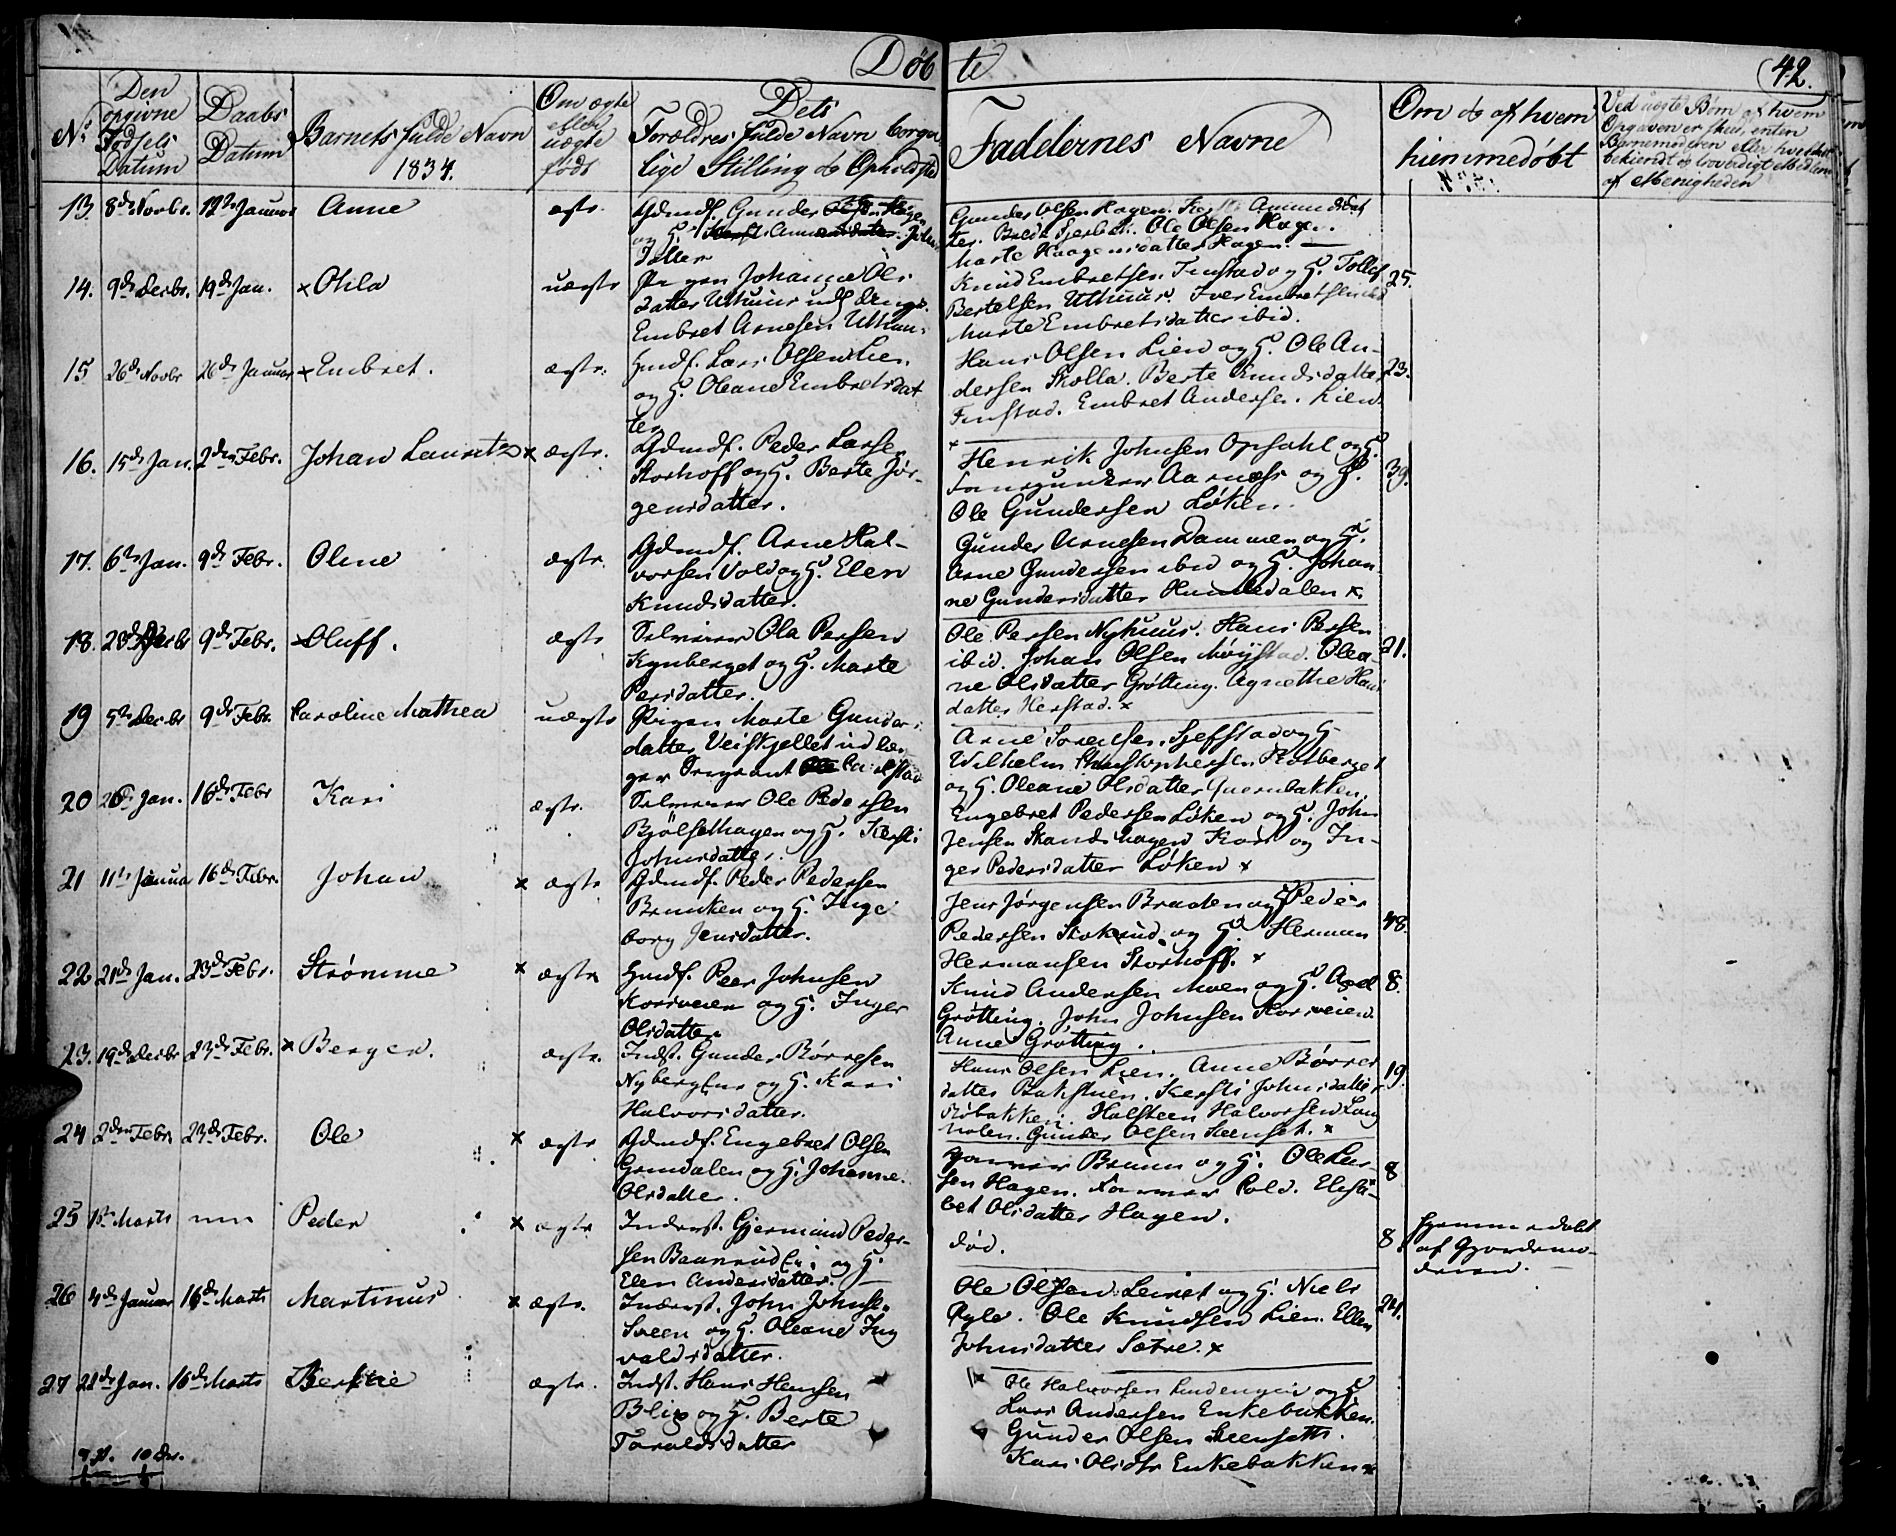 Døbte
42.
No
Den opgivne Fødsels Datum
Daabs Datum
Barnets fulde Navn 1834.
Om ægte eller uægte født
Dets Forældres fulde Navn borgerlige Stilling og Opholdssted
Faddernes Navne
Om og af hvem hiemmedøbt
Ved uægte Børn af hvem Opgaven er skeet, enten Barnemoderen eller hvershelst bekiendt og troværdigt Medlem af Menigheden
13. 8de Novbr. 12te Januar Anne ægte.
Gdmd. Gunder Olsen Hagen
og H.
datter
Gunder Olsen Hagen. Amundsdat
ter. Ole Olsen Hagen.
Marte Haagensdatter Hagen.
14. 9de Decbr. 19de Jan. x Ohla uægte
Pigen Johanne Ols
datter Uthuus udl. dreng
Embret Arnesen Uthuus
Knud Embretsen Finstad og H. Tollef
Bertelsen Uthuus. Iver Embretsen ibid
Marte Embretsdatter ibid.
25.
15 26de Novbr 26de Januar x Embret. ægte.
Hmd. Lars Olsen Lien
og H. Oleane Embretsdat
ter
Hans Olsen Lien og H. Ole An-
dersen Skolla. Berte Knudsdatter
Finstad. Embret Andersen Lien.
23.
16. 15de Jan. 2den Febr. Johan Lauritz x ægte.
Gdmd. Peder Larsen
Storhoff og H. Berte Jør-
gensdatter.
x Henrik Johnsen Opsahl og H.
Aarnæss og H.
Ole Gundersen Løken.
39.
17. 6te Jan. 9de Febr. Oline ægte.
Gdmd. Arne Hal-
vorsen Vold og H. Elen
Knudsdatter.
Gunder Arnesen Dammen og H.
Arne Gundersen ibid og H. Johan-
ne Gundersdatter Hundedalen x.
18. 28de Decbr 9de Febr. Oluff. ægte
Selveier Ola Persen
Kynberget og H. Marte
Persdatter.
Ole Persen Nyhuus. Hans Persen
ibid. Johan Olsen Møystad. Olea-
ne Olsdatter Grøtting. Agnethe Hans
datter Herstad. x
21.
19 5te Decbr 9de Febr. Caroline Mathea uægte
Pigen Marte Gunders
datter Veiskjellet udlæg
ger Sergeant
Arne Sørensen Sjefstad og H.
Wilhelm Christophersen Skotberget
og H. Oleane Olsdatter Qvernbakken.
20 26de Jan. 16de Febr Kari ægte.
Selveier Ole Pedersen
Bjølsethagen og H. Kersti
Johnsdatter.
Engebret Pedersen Løken og H. John
Jensen Strandshagen Kari og In-
ger Pedersdatter Løken x
21 11te Januar 16de Febr. Johan x ægte
Gdmd. Peder Pedersen
Brunken og H. Inge
borg Jensdatter.
Jens Jørgensen Braaten og H. Peder
Pedersen Stokerud og H. Herman
Hermansen Storhoff. x
48.
22 21de Jan. 23de Febr. Strømme x ægte
Hmd. Peer Johnsen
Korsveien og H. Inger
Olsdatter
Knud Andersen Moen og H. Axel
Grøtting. John Johnsen Korsveien.
Anne Grøtting.
8.
23. 19de Decbr 23de Febr. x Berger. ægte.
Indst. Gunder Børresen
Nyberg Eie og H. Kari
Halvorsdatter.
Hans Olsen Lien. Anne Børres
datter Bakstuen. Kersti Johnsdatter
Hobakken. Halsteen Halvorsen Lang
holen. Gunder Olsen Steenset. x
19.
24 2den Febr. 23de Febr. Ole x ægte
Gdmd. Engebret Olsen
Grindalen og H. Johanne
Olsdatter.
Braun og H. Ole Lar-
sen Hagen. Pold. Elisa-
bet Olsdatter Hagen.
8
25 1ste Marts Peder x ægte
Inderst. Gjermund Peder-
sen Baarrud Ei. og H.
Elen Andersdatter.
død.
8
hjemmedøbt
af Gjordemo-
deren.
26 4de Januar 16de Marts Martinus x ægte.
Inderst. John Johnsen
Sveen og H. Oleane Ing
valdsdatter.
Ole Olsen Leiret og H. Niels
Ryle. Ole Knudsen Lien. Ellen
Johnsdatter Sætre. x
21.
27 22de Jan. 16de Marts Bertie ægte.
Indst. Hans Hensen
Blix og H. Berte
Taraldsdatter
Ole Halvorsen Lindengen og H.
Lars Andersen Enkebakken.
Gunder Olsen Steensett.
Kari Olsdtr Enkebakken x